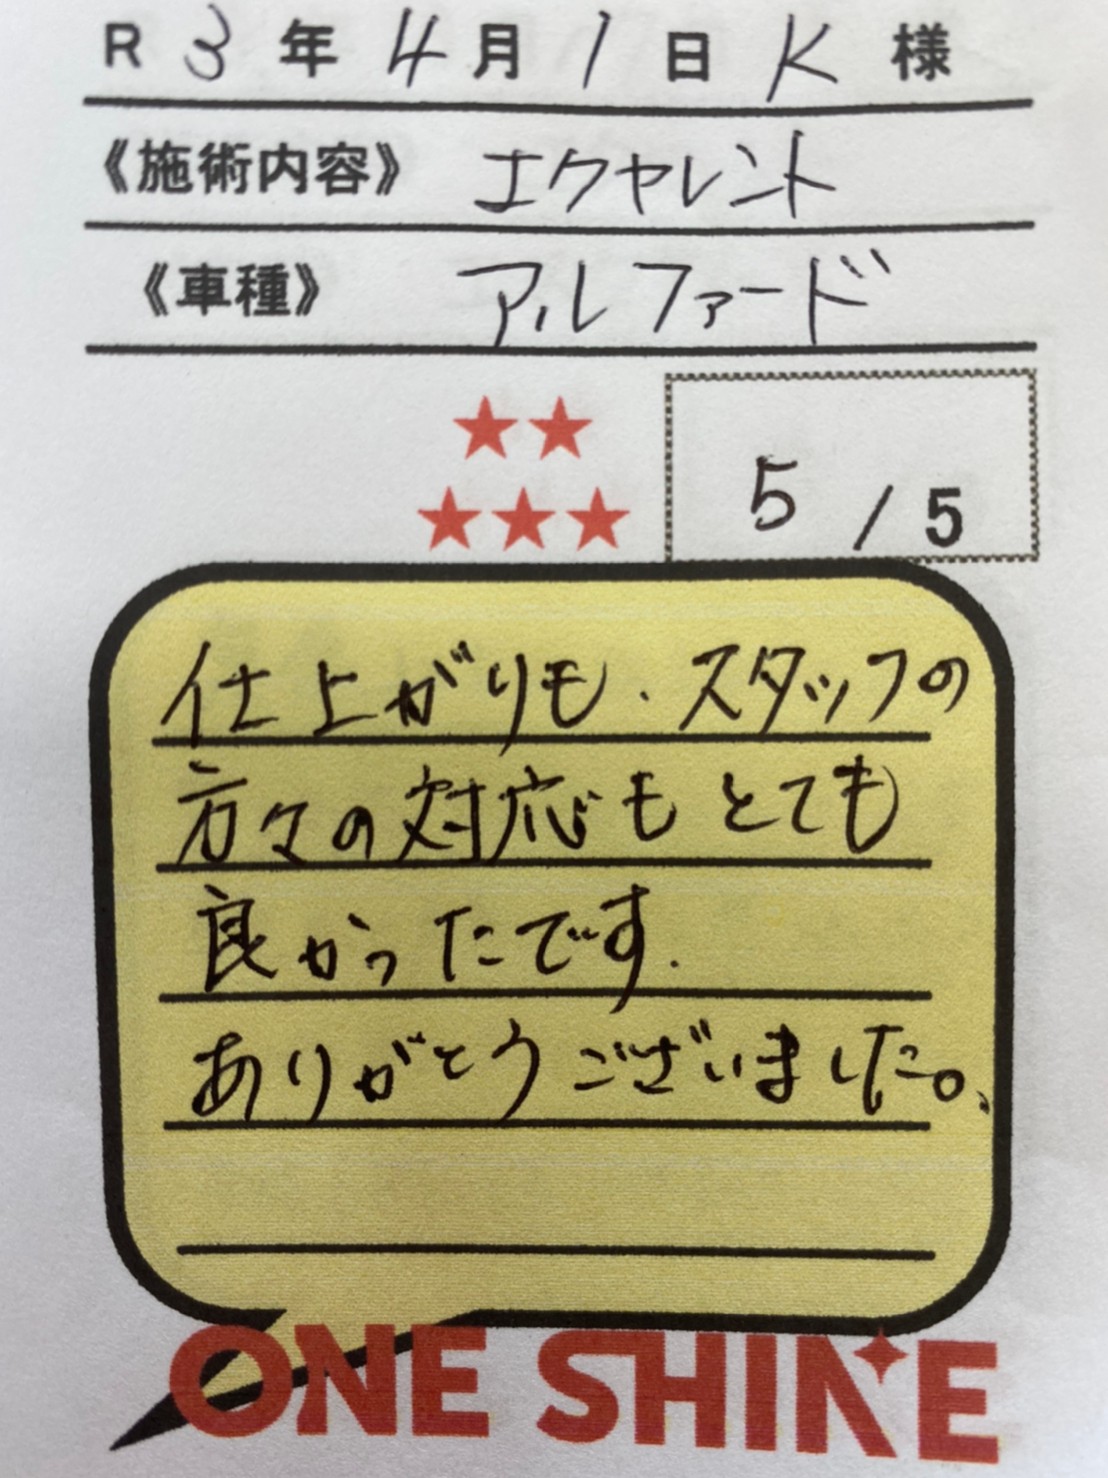 R 3 年 4 月 1 日 K 様
《施術内容》 エクセレント
《車種》 アルファード
★★
★★★
5 / 5
仕上がりも、スタッフの
方々の対応もとても
良かったです.
ありがとうございました。
ONE SHINE